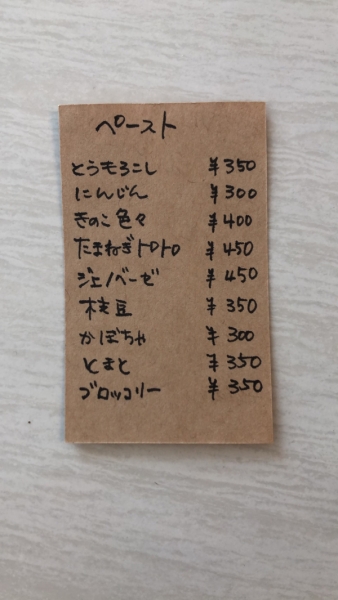 ペースト
とうもろこし ¥350
にんじん ¥300
きのこ色々 ¥400
たまねぎトロトロ ¥450
ジェノベーゼ ¥450
枝豆 ¥350
かぼちゃ ¥300
とまと ¥350
ブロッコリー ¥350